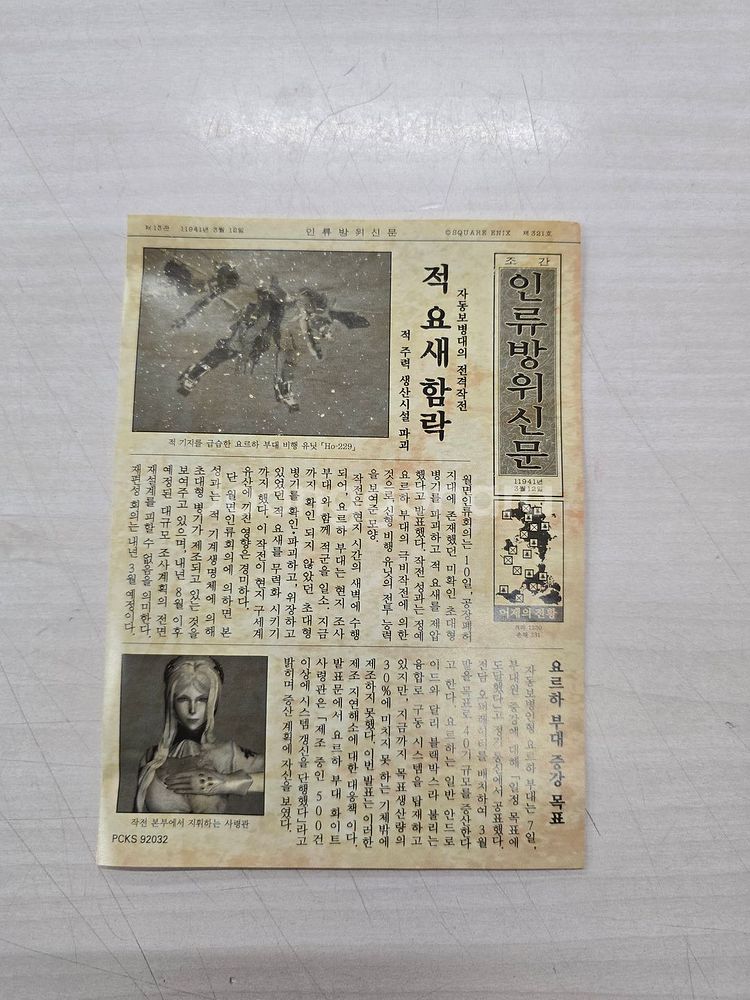 제13권 11941년 3월 12일 인류방위신문 ©SQUARE ENIX 제321호
조간
인류방위신문
11941년
3월 12일
어제의 전황
자동보병대의 전격작전
적 요새 함락
적 주력 생산시설 파괴
적 기지를 급습한 요르하 부대 비행 유닛「Ho-229」
월면인류회의는 10일, 공장폐허
지대에 존재했던 미확인 초대형
병기를 파괴하고 적 요새를 제압
했다고 발표했다. 작전 성과는 정예
요르하 부대의 극비작전에 의한
것으로 신형 비행 유닛의 전투 능력
을 보여준 모양.
작전은 현지 시간의 새벽에 수행
되어, 요르하 부대는 현지 조사
부대와 함께 적군을 일소. 지금
까지 확인 되지 않았던 초대형
병기를 확인·파괴하고, 위장하고
있었던 적 요새를 무력화 시키기
까지 했다. 이 작전이 현지 구세계
유산에 끼친 영향은 경미하다.
단 월면인류회의에 의하면 본
성과는 적 기계생명체에 의해
초대형 병기가 제조되고 있는 것을
보여주고 있으며, 내년 8월 이후
예정된 대규모 조사계획의 전면
재설계를 피할 수 없음을 의미한다.
재편성 회의는 내년 3월 예정이다.
요르하 부대 증강 목표
자동보병인형 요르하 부대는 7일,
부대원 증강에 대해「일정 목표에
도달했다」고 정기 통신에서 공표했다.
전담 오퍼레이터를 배치하여 3월
말을 목표로 40기 규모를 증산한다
고 한다. 요르하는 일반 안드로
이드와 달리 블랙박스라 불리는
융합로 구동 시스템을 탑재하고
있지만, 지금까지 목표생산량의
30%에 미치지 못 하는 기체밖에
제조하지 못했다. 이번 발표는 이러한
제조 지연해소에 대한 대응책이다.
발표문에서 요르하 부대 화이트
사령관은「제조 중인 500건
이상에 시스템 갱신을 단행했다」라고
밝히며 증산 계획에 자신을 보였다.
작전 본부에서 지휘하는 사령관
PCKS 92032